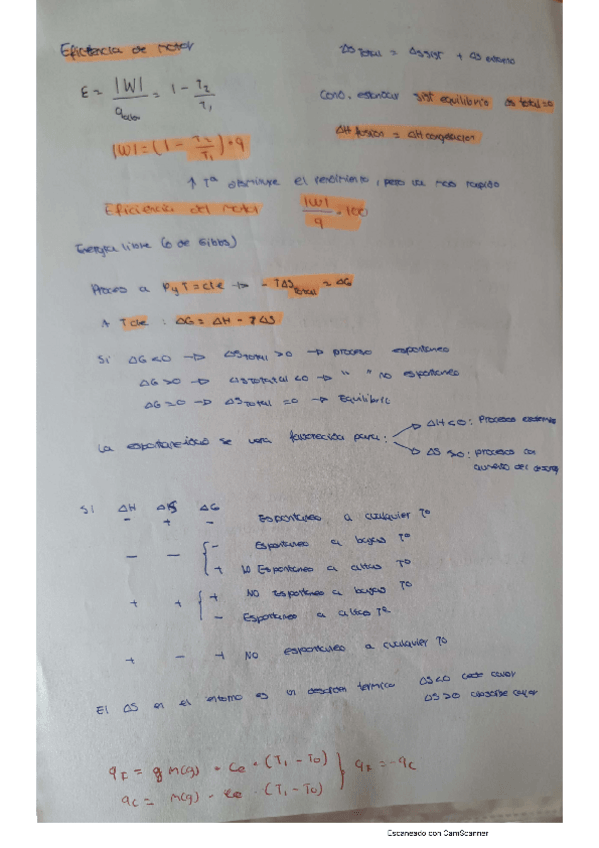 Eficiencia de motor
ΔS total = ΔSsist + ΔS entorno
ε = |W| / qabs = 1 - T2 / T1
Cond. estandar sist equilibrio ΔS total=0
|W| = (1 - T2 / T1) · q
ΔH fusion = ΔH congelacion
↑ Tª disminuye el rendimiento, pero va mas rapido
Eficiencia del motor |W| / q · 100
Energia libre (o de Gibbs)
Proceso a P y T = cte → - TΔS Total = ΔG
A T cte : ΔG = ΔH - TΔS
Si ΔG <0 → ΔS total >0 → proceso espontaneo
ΔG >0 → ΔS total <0 → " " no espontaneo
ΔG =0 → ΔS total =0 → Equilibrio
La espontaneidad se vera favorecida para:
ΔH <0 : Procesos
ΔS >0 : procesos con
aumento del desorg
SI ΔH ΔS ΔG
- + - Espontaneo a cualquier Tº
- - { - Espontaneo a bajas Tº
+ NO Espontaneo a altas Tº
+ + { + NO Espontaneo a bajas Tº
- Espontaneo a altas Tª
+ - + NO espontaneo a cualquier Tº
El ΔS en el entorno es un desorden termico ΔS <0 cede calor
ΔS >0 absorbe calor
qF = m(g) · Ce · (T1 - T0) } qF = -qc
qc = m(g) · Ce · (T1 - T0)
Escaneado con CamScanner